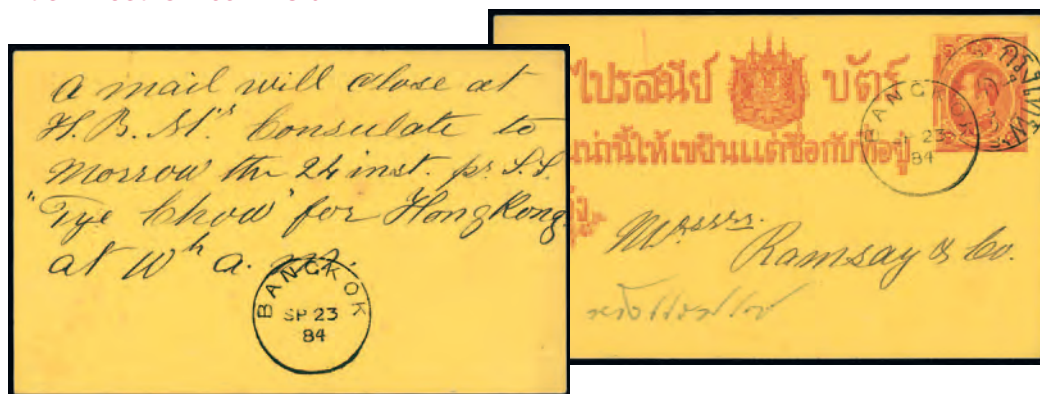 a mail will close at
H. B. M's Consulate to
morrow the 24 inst. pr S.S.
"Tye Chow" for Hong Kong
at 10h a. m.
BANGKOK
SP 23
84
ไปรสนีย์ บัตร์
BANGKOK
23
84
กรุงเทพฯ
Messrs.
Ramsay & Co.